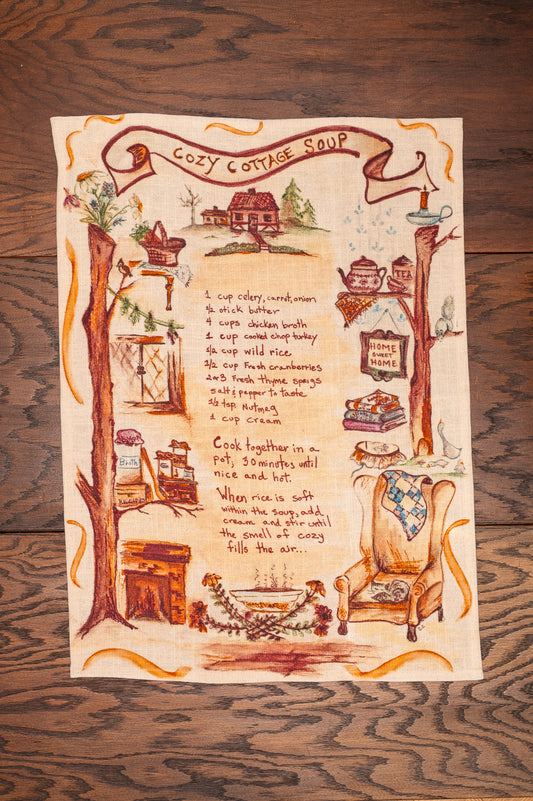 COZY COTTAGE SOUP
TEA
1 cup celery, carrot, onion
1/2 stick butter
4 cups chicken broth
1 cup cooked chop turkey
1/2 cup wild rice
1/2 cup Fresh cranberries
2 or 3 Fresh thyme sprigs
salt & pepper to taste
1/2 tsp. Nutmeg
1 cup cream
HOME
SWEET
HOME
Broth
Cook together in a
pot, 30 minutes until
nice and hot.
When rice is soft
within the soup, add
cream and stir until
the smell of cozy
fills the air...